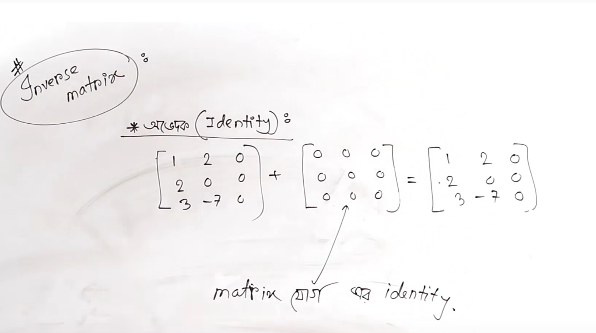 # Inverse matrix :
* অভেদক (Identity) :
[1 2 0] + [0 0 0] = [1 2 0]
[2 0 0] [0 0 0] [2 0 0]
[3 -7 0] [0 0 0] [3 -7 0]
matrix যোগ এর identity.